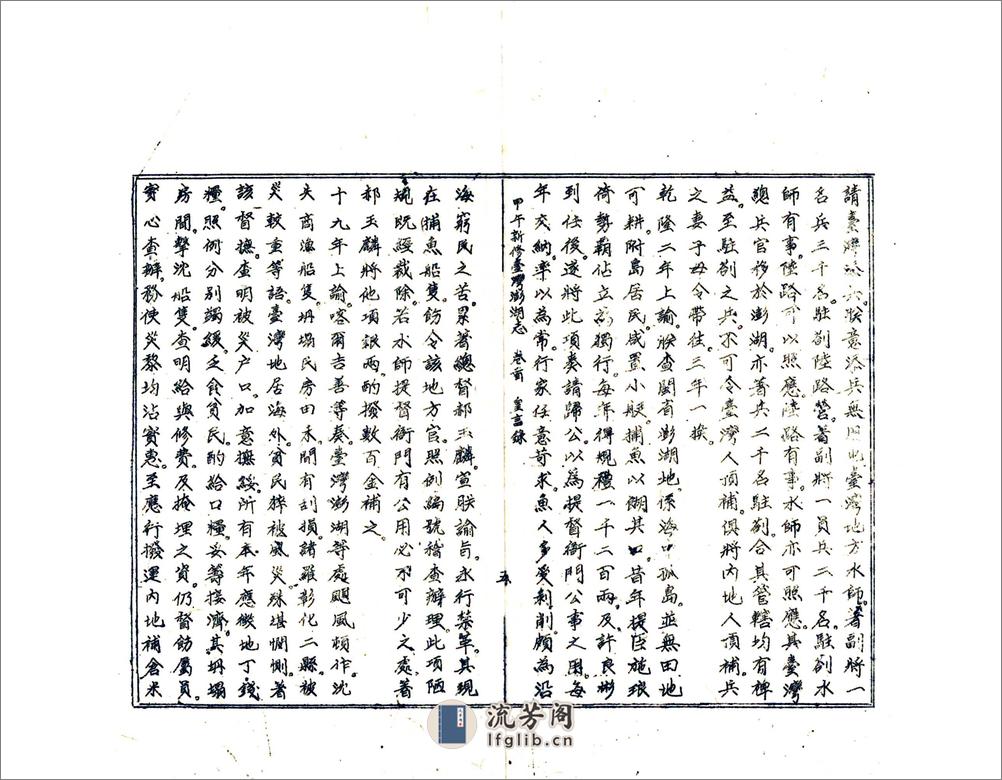 請臺灣添兵。朕意添兵無用。此臺灣地方水師。著副將一
名兵三千名。駐劄陸路營。著副將一員兵二千名。駐劄水
師有事。陸路可以照應。陸路有事。水師亦可照應。其臺灣
總兵官移於澎湖。亦著兵二千名駐劄。合其管轄均有裨
益。至駐劄之兵。不可令臺灣人頂補。俱將內地人頂補兵
之妻子毋令帶往。三年一換。
乾隆二年上諭。朕查閩省澎湖地。係海中孤島。並無田地
可耕。附島居民咸置小艇。捕魚以餬其口。昔年提臣施琅
倚勢霸佔立為獨行。每年得規禮一千二百兩。及許良彬
到任後。遂將此項奏請歸公。以為提督衙門公事之用。每
年交納。率以為常。行家任意苛求。魚人多受剝削。頗為沿
甲午新修臺灣澎湖志 卷首 皇言錄
五
海窮民之苦。累著總督郝玉麟宣朕諭旨。永行禁革。其現
在捕魚船隻。飭令該地方官。照例編號稽查辦理。此項陋
規既經裁除。若水師提督衙門有公用必不可少之處。著
郝玉麟將他項銀兩。酌撥數百金補之。
十九年上諭。喀爾吉善等奏。臺灣澎湖等處颶風頓作。沈
失商漁船隻。坍塌民房田禾。間有刮損。諸羅彰化二縣。被
災較重等語。臺灣地居海外。貧民猝被風災。殊堪憫惻。著
該督撫。查明被災户口。加意撫綏。所有本年應徵地丁錢
糧。照例分別蠲緩。乏食貧民。酌給口糧。妥籌接濟。其坍塌
房間。擊沈船隻。查明給與修費。及掩埋之資。仍督飭屬員。
實心查辦。務使災黎均沾實惠。至應行撥運內地補倉米
流芳閣
lfglib.cn